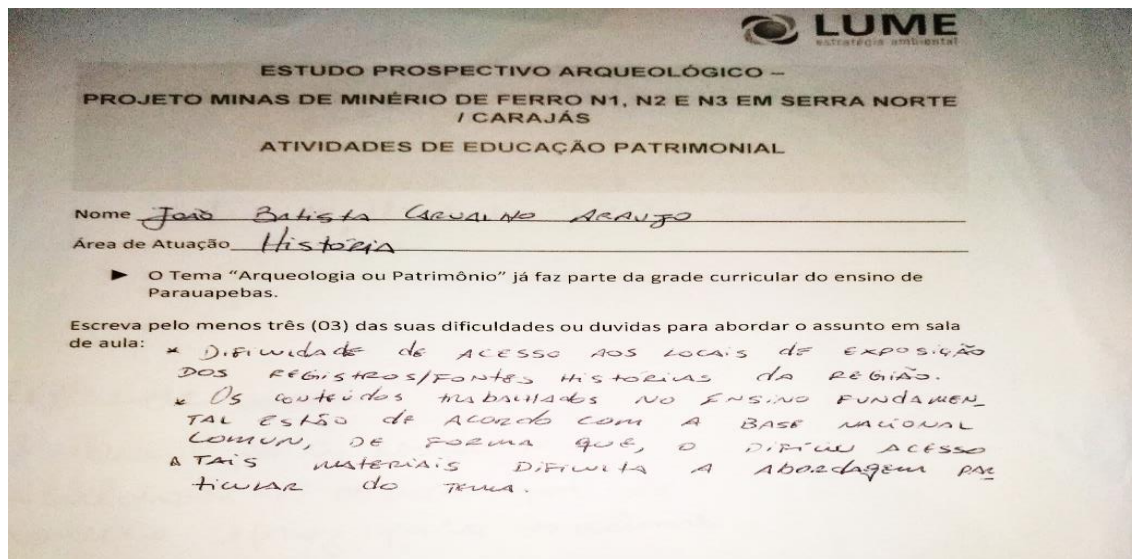 LUME
estratégia ambiental
ESTUDO PROSPECTIVO ARQUEOLÓGICO –
PROJETO MINAS DE MINÉRIO DE FERRO N1, N2 E N3 EM SERRA NORTE
/ CARAJÁS
ATIVIDADES DE EDUCAÇÃO PATRIMONIAL
Nome João Batista Carvalho Araujo
Área de Atuação História
► O Tema “Arqueologia ou Patrimônio” já faz parte da grade curricular do ensino de
Parauapebas.
Escreva pelo menos três (03) das suas dificuldades ou duvidas para abordar o assunto em sala
de aula: * Dificuldade de acesso aos locais de exposição
dos registros/fontes históricas da região.
* Os conteúdos trabalhados no ensino fundamen_
tal estão de acordo com a base nacional
comun, de forma que, o difícil acesso
a tais materiais dificulta a abordagem par
ticular do tema.